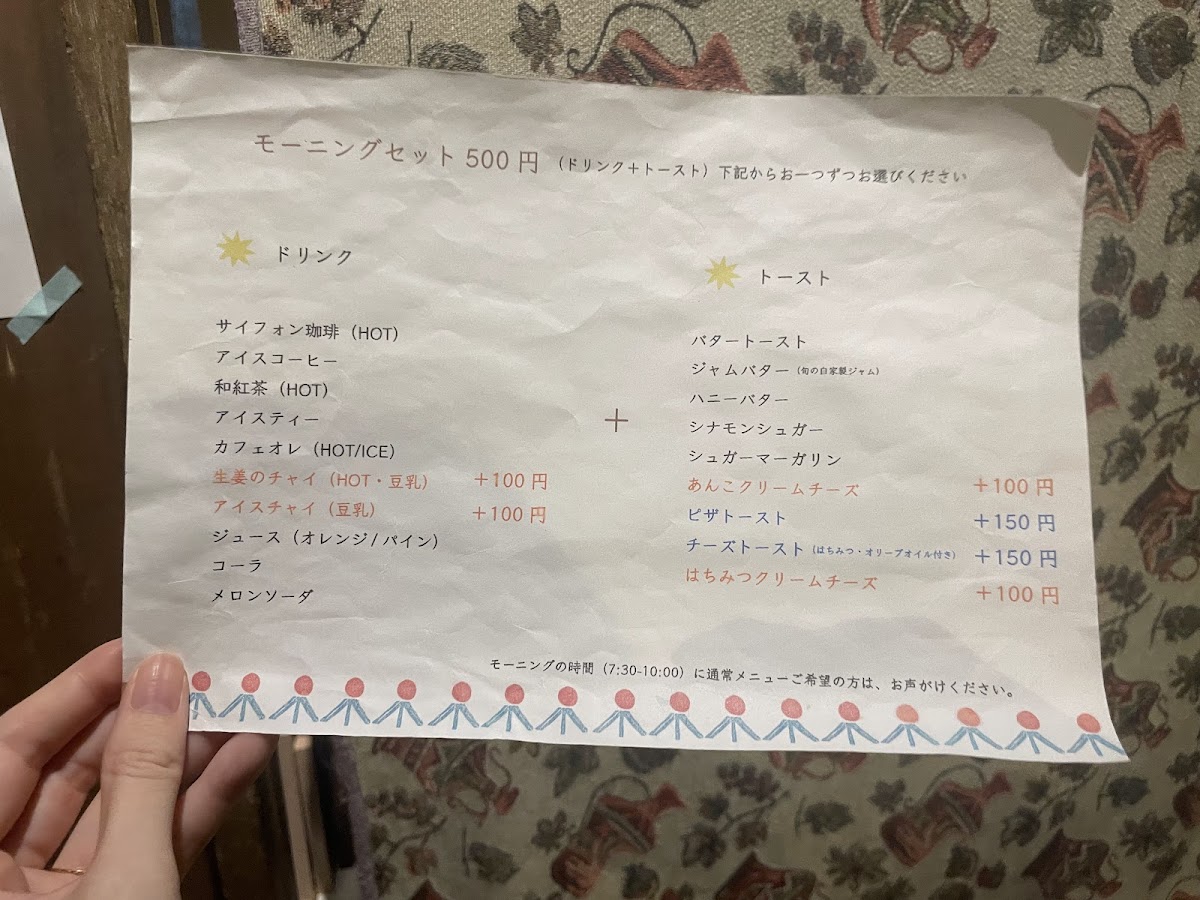 モーニングセット 500 円 （ドリンク＋トースト）下記からお一つずつお選びください
ドリンク
サイフォン珈琲（HOT）
アイスコーヒー
和紅茶（HOT）
アイスティー
カフェオレ（HOT/ICE）
生姜のチャイ（HOT・豆乳） ＋100 円
アイスチャイ（豆乳） ＋100 円
ジュース（オレンジ / パイン）
コーラ
メロンソーダ
＋
トースト
バタートースト
ジャムバター（旬の自家製ジャム）
ハニーバター
シナモンシュガー
シュガーマーガリン
あんこクリームチーズ ＋100 円
ピザトースト ＋150 円
チーズトースト（はちみつ・オリーブオイル付き） ＋150 円
はちみつクリームチーズ ＋100 円
モーニングの時間（7:30-10:00）に通常メニューご希望の方は、お声がけください。